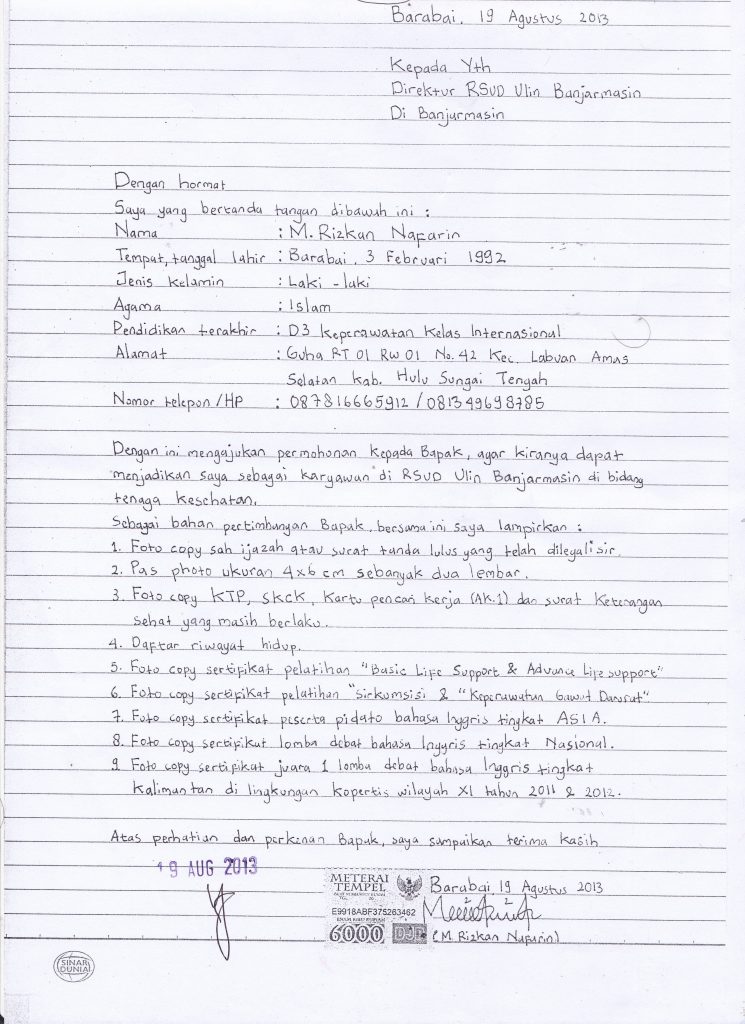 Barabai, 19 Agustus 2013
Kepada Yth
Direktur RSUD Ulin Banjarmasin
Di Banjarmasin
Dengan hormat
Saya yang bertanda tangan dibawah ini :
Nama : M. Rizkan Nafarin
Tempat, tanggal lahir : Barabai, 3 Februari 1992
Jenis Kelamin : Laki - laki
Agama : Islam
Pendidikan terakhir : D3 Keperawatan Kelas Internasional
Alamat : Guha RT 01 RW 01 No. 42 Kec. Labuan Amas
Selatan Kab. Hulu Sungai Tengah
Nomor telepon / HP : 087816665912 / 081349698785
Dengan ini mengajukan permohonan Kepada Bapak, agar kiranya dapat
menjadikan saya sebagai karyawan di RSUD Ulin Banjarmasin di bidang
tenaga Kesehatan.
Sebagai bahan pertimbangan Bapak, bersama ini saya lampirkan :
1. Foto copy sah ijazah atau surat tanda lulus yang telah dilegalisir.
2. Pas photo ukuran 4x6 cm sebanyak dua lembar.
3. Foto copy KTP, SKCK, Kartu pencari Kerja (AK.1) dan surat Keterangan
sehat yang masih berlaku.
4. Daftar riwayat hidup.
5. Foto copy sertifikat pelatihan "Basic Life Support & Advance Life support"
6. Foto copy sertifikat pelatihan "Sirkumsisi & "Keperawatan Gawat Darurat"
7. Foto copy sertifikat peserta pidato bahasa Inggris tingkat ASIA.
8. Foto copy sertifikat lomba debat bahasa Inggris tingkat Nasional.
9 Foto copy sertifikat juara 1 lomba debat bahasa Inggris tingkat
Kalimantan di lingkungan Kopertis wilayah XI tahun 2011 & 2012.
Atas perhatian dan perkenan Bapak, saya sampaikan terima Kasih
19 AUG 2013
METERAI
TEMPEL
E9918ABF375263462
6000 DJP
Barabai, 19 Agustus 2013
(M Rizkan Nafarin)
SINAR
DUNIA